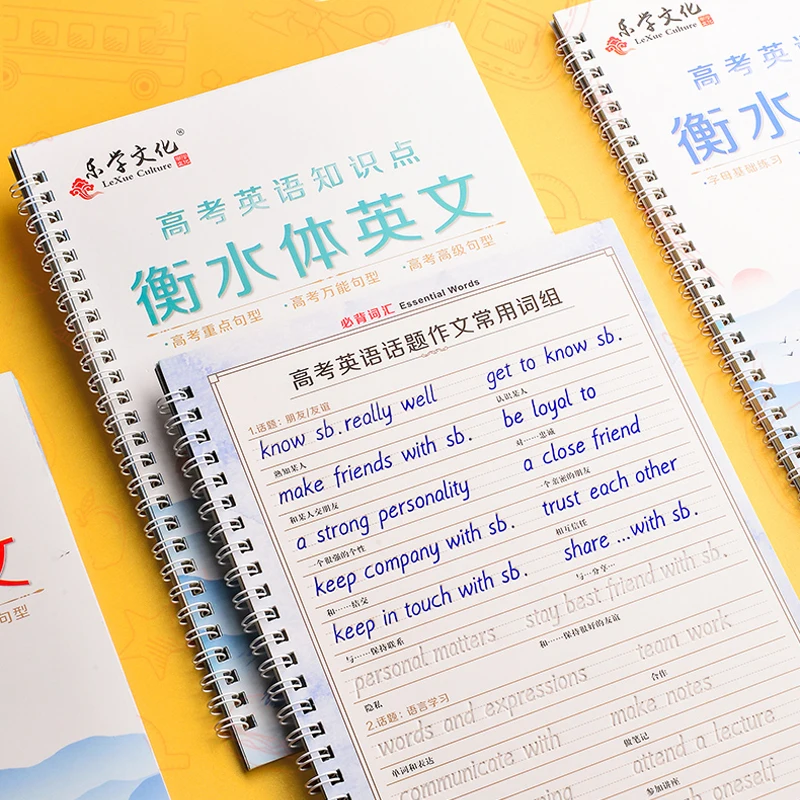 乐学文化®
LeXue Culture
高考英语知识点
衡水体英文
·高考重点句型 ·高考万能句型 ·高考高级句型
乐学文化
LeXue Culture
高考英语
衡水
·字母基础练习
文
句型
必背词汇 Essential Words
高考英语话题作文常用词组
1.话题：朋友/友谊
know sb.really well get to know sb.
熟知某人 认识某人
make friends with sb. be loyal to
和某人交朋友 对……忠诚
a strong personality a close friend
一个很强的个性 一个亲密的朋友
keep company with sb. trust each other
和……结交 相互信任
keep in touch with sb. share ...with sb.
与……保持联系 与…分享…
personal matters stay best friend with sb.
隐私 和……保持很好的友谊
2.话题：语言学习
words and expressions team work
单词和表达 合作
communicate with make notes
做笔记
attend a lecture
参加讲座
oneself